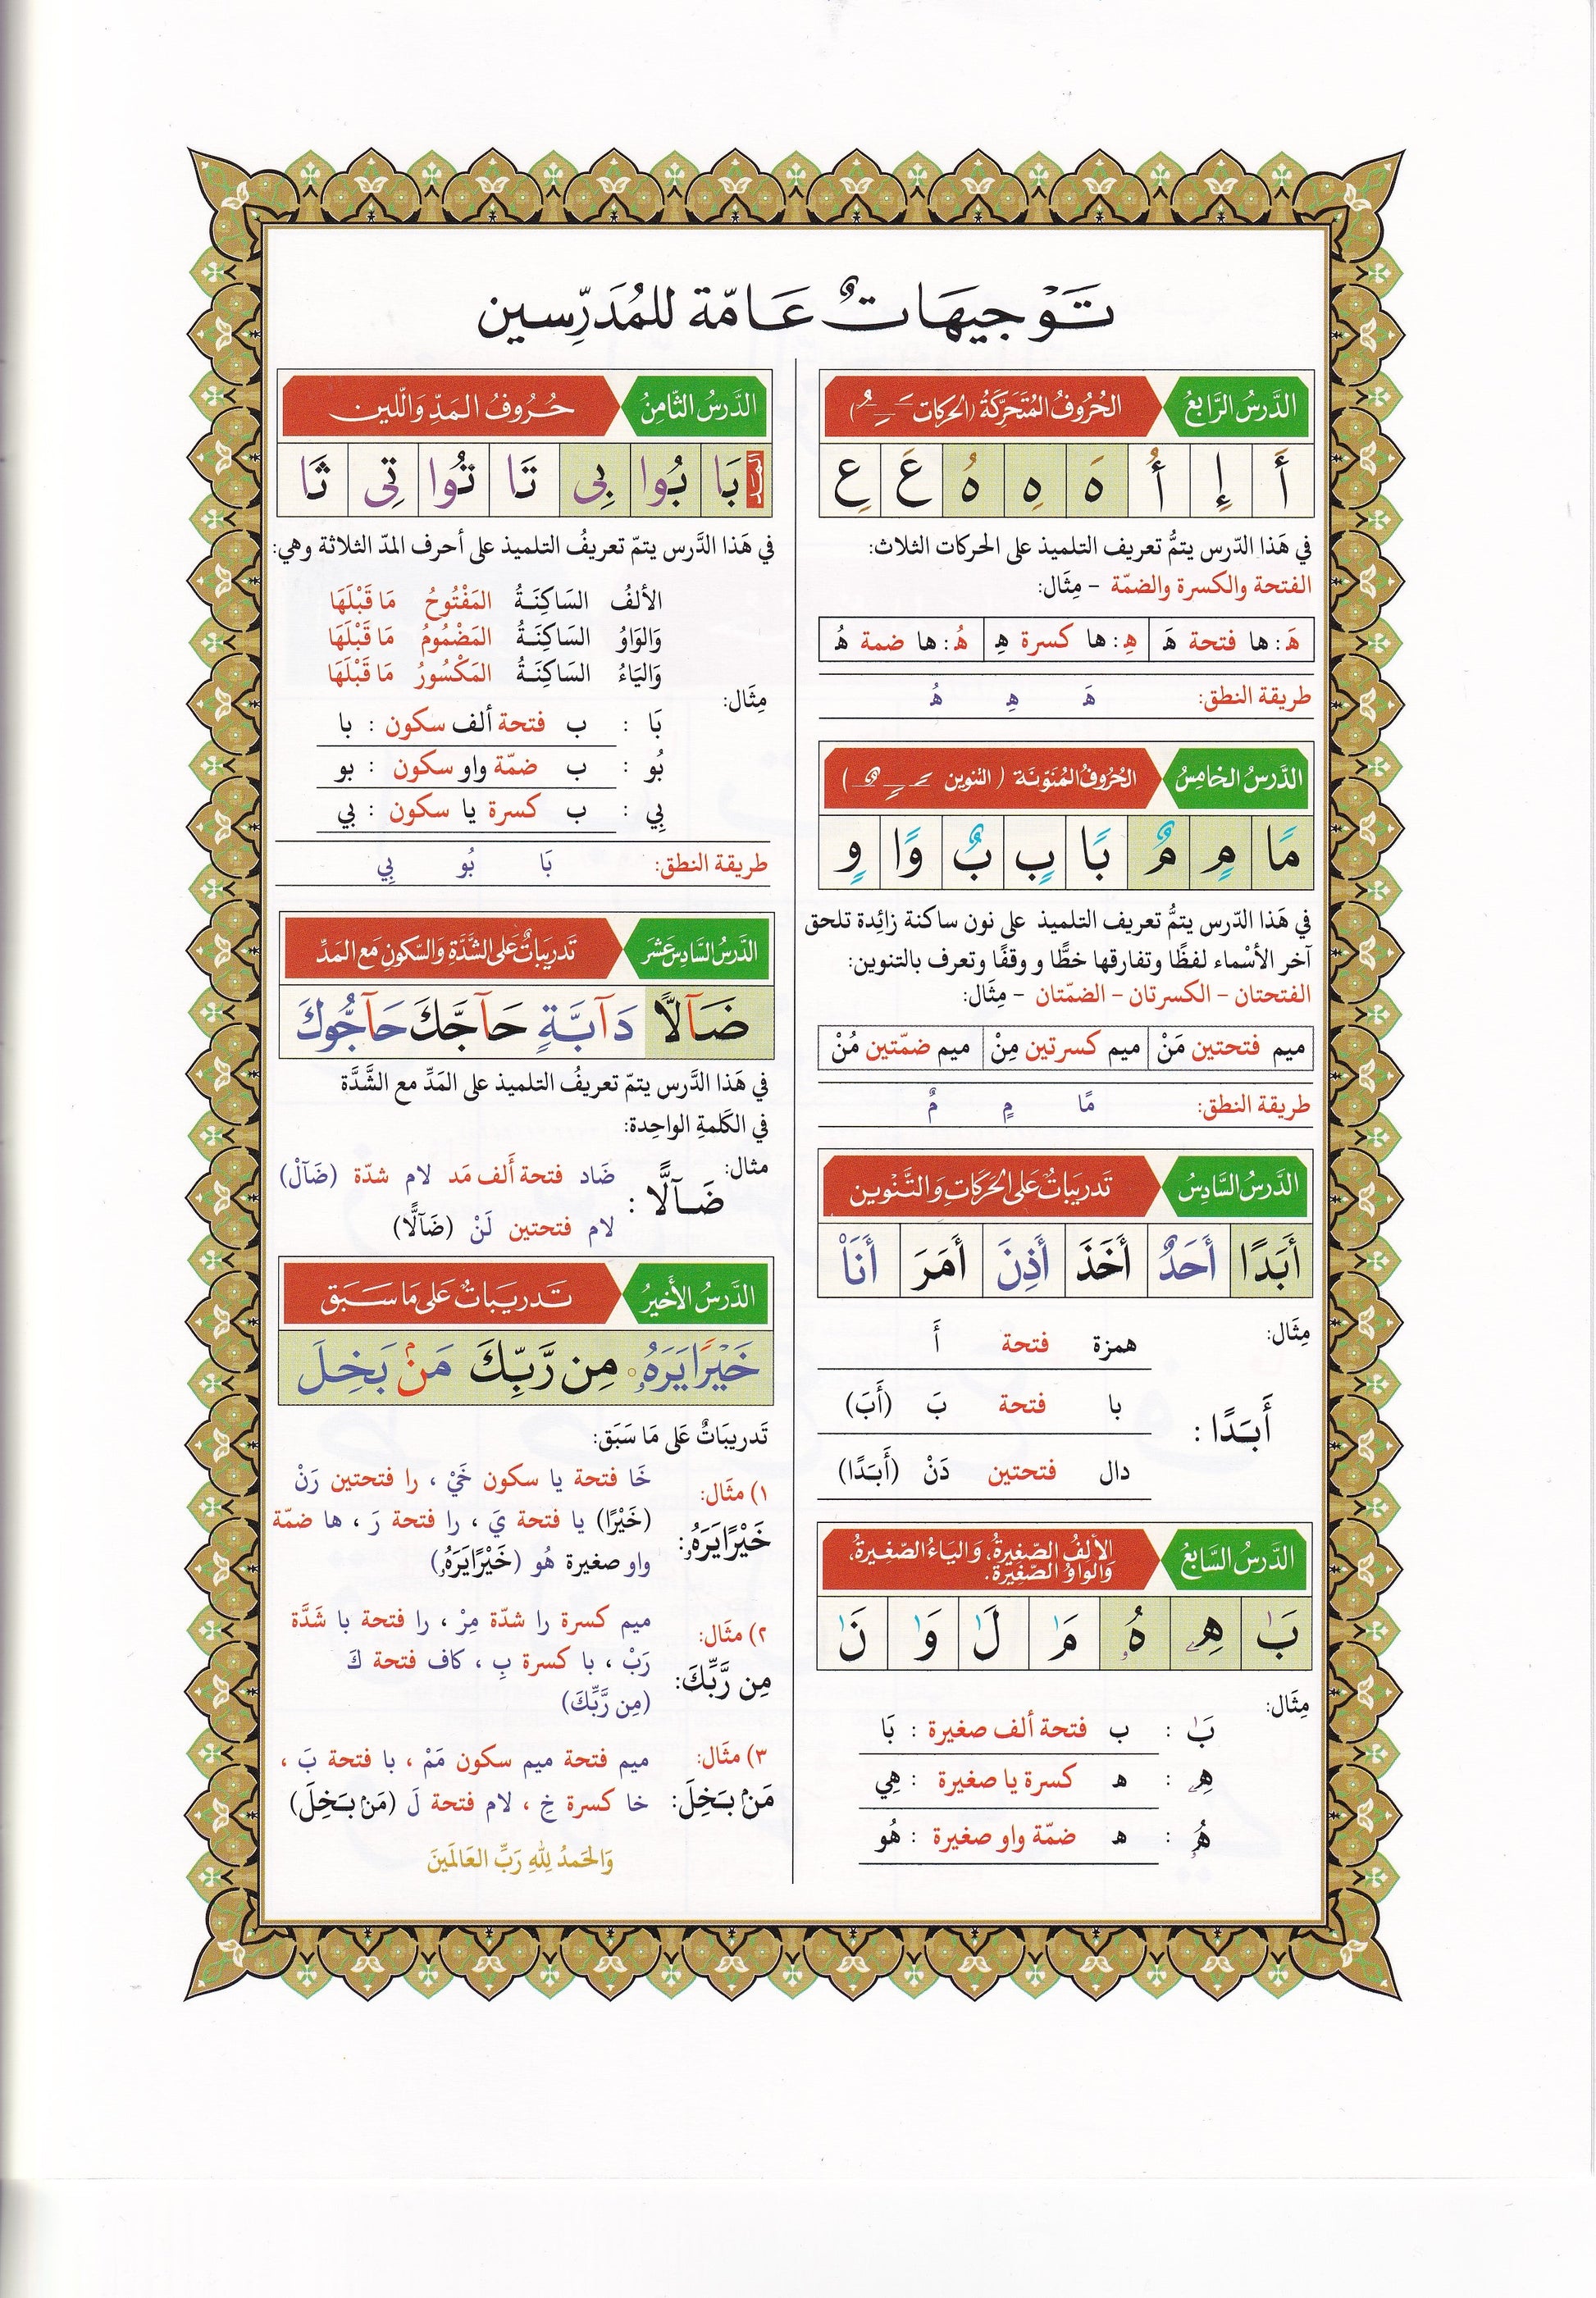 تَوْجِيهَاتٌ عَامّة للمُدَرِّسين
الدَّرسُ الرَّابعُ
الحُرُوفُ المُتَحَرِّكَةُ (الحركات ـَ ـِ ـُ)
أَ إِ أُ هَ هِ هُ عَ عِ
في هَذا الدّرس يتمُّ تعريف التلميذ على الحركات الثلاث:
الفتحة والكسرة والضمّة - مِثَال:
هَ: ها فتحة هَ هِ: ها كسرة هِ هُ: ها ضمة هُ
طريقة النطق: هَ هِ هُ
الدَّرسُ الخَامِسُ
الحُرُوفُ المُنَوّنَة (التنوين ـً ـٍ ـٌ)
مًا مٍ مٌ بًا بٍ بٌ وًا وٍ
في هَذا الدّرس يتمُّ تعريف التلميذ على نون ساكنة زائِدة تلحق
آخر الأسْماء لفظًا وتفارقها خطًّا و وقفًا وتعرف بالتنوين:
الفتحتان - الكسرتان - الضمّتان - مِثَال:
ميم فتحتين مَنْ ميم كسرتين مِنْ ميم ضمّتين مُنْ
طريقة النطق: مًا مٍ مٌ
الدَّرسُ السَّادِسُ
تَدريبَاتٌ عَلى الحَرَكَاتِ وَالتَّنْوين
أَبَدًا أَحَدٌ أَخَذَ أَذِنَ أَمَرَ أَنَا۠
مِثَال:
همزة فتحة أَ
أَبَدًا : با فتحة بَ (أَبَ)
دال فتحتين دَنْ (أَبَدًا)
الدَّرسُ السَّابعُ
الألِفُ الصّغِيرةُ، وَاليَاءُ الصّغِيرةُ،
وَالوَاوُ الصّغِيرَة.
بَٰ هِۦ هُۥ مَٰ لَٰ وَٰ نَٰ
مِثَال:
بَٰ : ب فتحة ألف صغيرة : بَا
هِۦ : ه كسرة يا صغيرة : هِي
هُۥ : ه ضمّة واو صغيرة : هُو
الدَّرسُ الثَّامِنُ
حُرُوفُ المَدِّ وَاللّين
المَد بَا بُوا بِى تَا تُوا تِى ثَا
في هَذا الدَّرس يتمّ تعريفُ التلميذ على أحرف المدّ الثلاثة وهي:
الألفُ السَاكِنَةُ المَفْتُوحُ مَا قَبْلَهَا
وَالوَاوُ السَاكِنَةُ المَضْمُومُ مَا قَبْلَهَا
وَاليَاءُ السَاكِنَةُ المَكْسُورُ مَا قَبْلَهَا
مِثَال:
بَا : ب فتحة ألف سكون : با
بُو : ب ضمّة واو سكون : بو
بِي : ب كسرة يا سكون : بي
طريقة النطق: بَا بُو بِي
الدَّرسُ السَّادِسَ عَشَرَ
تَدريبَاتٌ عَلى الشدَّةِ وَالسّكونِ مَع المَدِّ
ضَآلًّا دَآبَّةٍ حَآجَّكَ حَآجُّوكَ
في هَذا الدَّرس يتمّ تعريفُ التلميذ على المَدِّ مع الشَّدَّة
في الكَلمةِ الواحِدة:
مثال: ضَاد فتحة ألف مَد لام شدّة (ضَآلْ)
ضَآلًّا :
لام فتحتين لَنْ (ضَآلًّا)
الدَّرسُ الأَخيرُ
تَدريبَاتٌ عَلى مَا سَبَق
خَيْرًا يَرَهُۥ مِن رَّبِّكَ مَنۢ بَخِلَ
تَدريبَاتٌ عَلى مَا سَبَق:
١) مثَال: خَا فتحة يا سكون خَيْ ، را فتحتين رَنْ
خَيْرًا يَرَهُۥ: (خَيْرًا) يا فتحة يَ ، را فتحة رَ ، ها ضمّة
واو صغيرة هُو (خَيْرًا يَرَهُۥ)
٢) مثَال: ميم كسرة را شدّة مِرْ ، را فتحة با شَدَّة
مِن رَّبِّكَ: رَبْ ، با كسرة بِ ، كاف فتحة كَ
(مِن رَّبِّكَ)
٣) مثَال: ميم فتحة ميم سكون مَمْ ، با فتحة بَ ،
مَنۢ بَخِلَ: خا كسرة خِ ، لام فتحة لَ (مَنۢ بَخِلَ)
وَالحَمدُ لِلهِ رَبِّ العَالَمَينَ